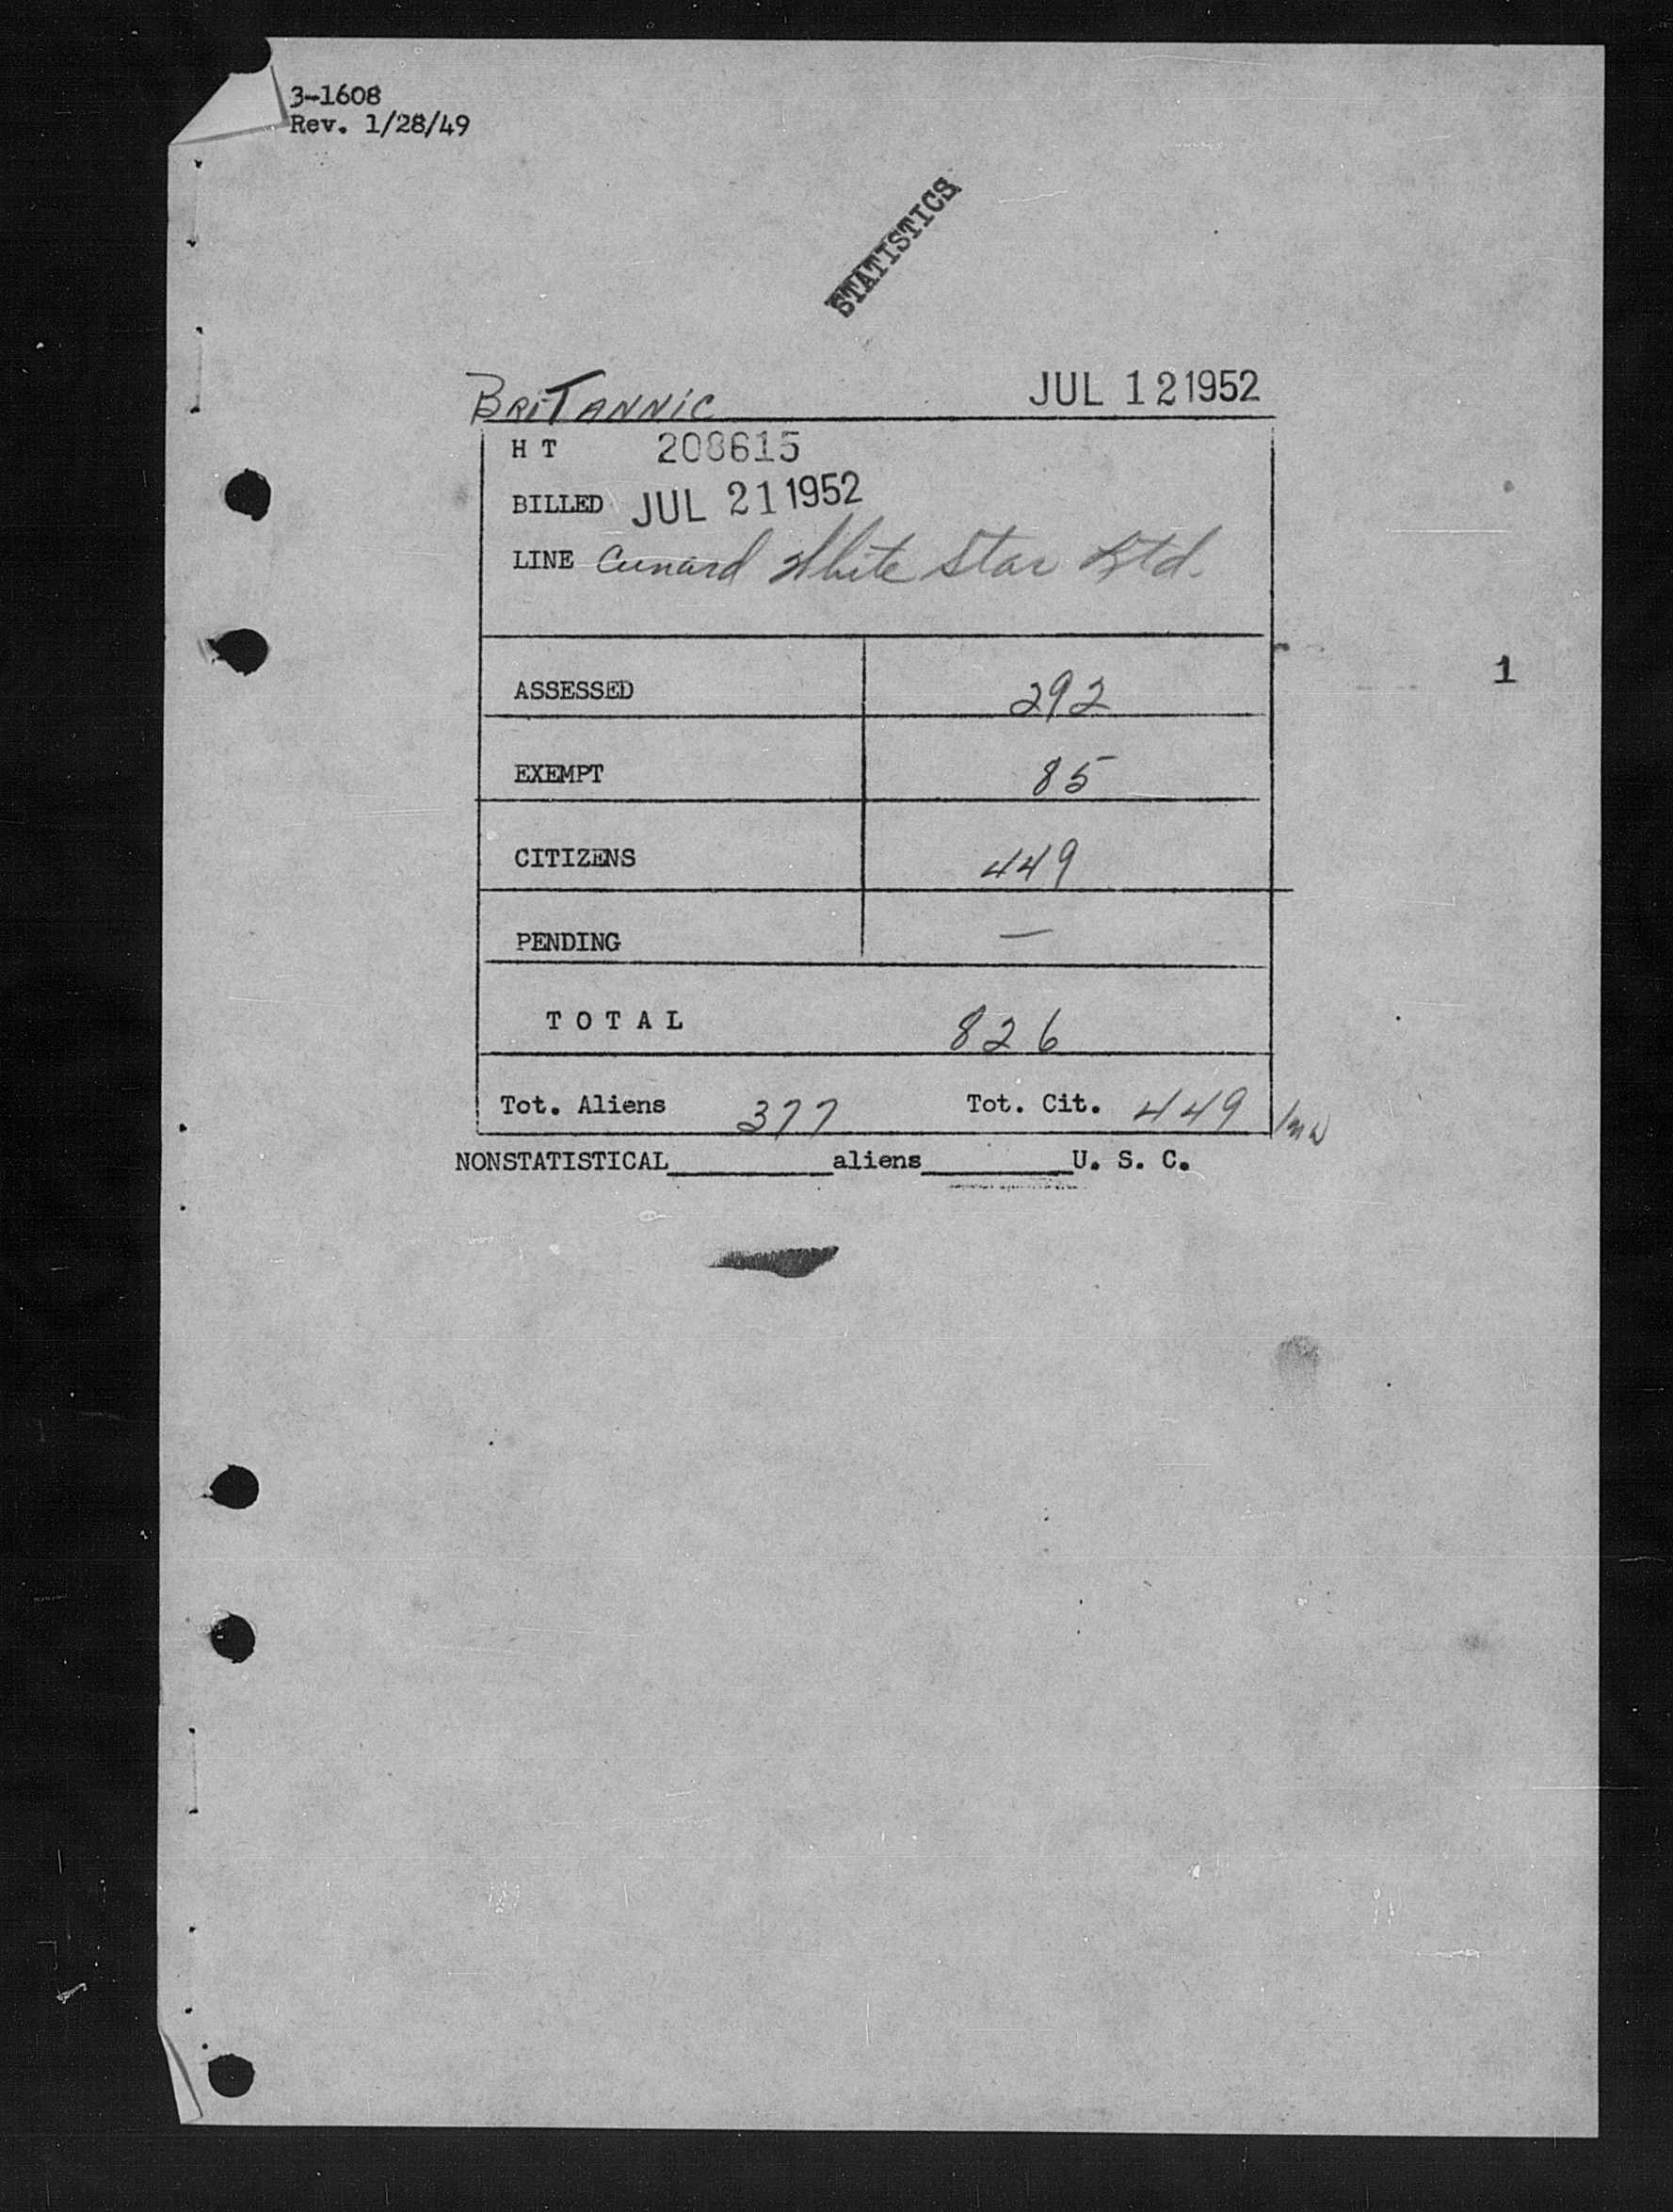 3-1608
Rev. 1/28/49
STATISTICS
BRITANNIC JUL 12 1952
H T 208615
BILLED JUL 21 1952
LINE Cunard White Star Ltd.
1
ASSESSED 292
EXEMPT 85
CITIZENS 449
PENDING —
T O T A L 826
Tot. Aliens 377 Tot. Cit. 449
NONSTATISTICAL__________aliens_________U. S. C.